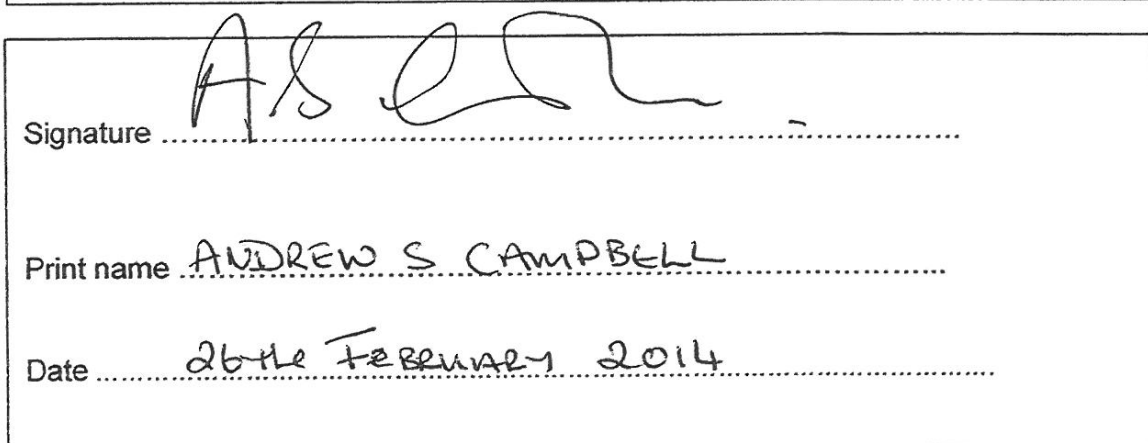 Signature
Print name ANDREW S CAMPBELL
Date 26th FEBRUARY 2014